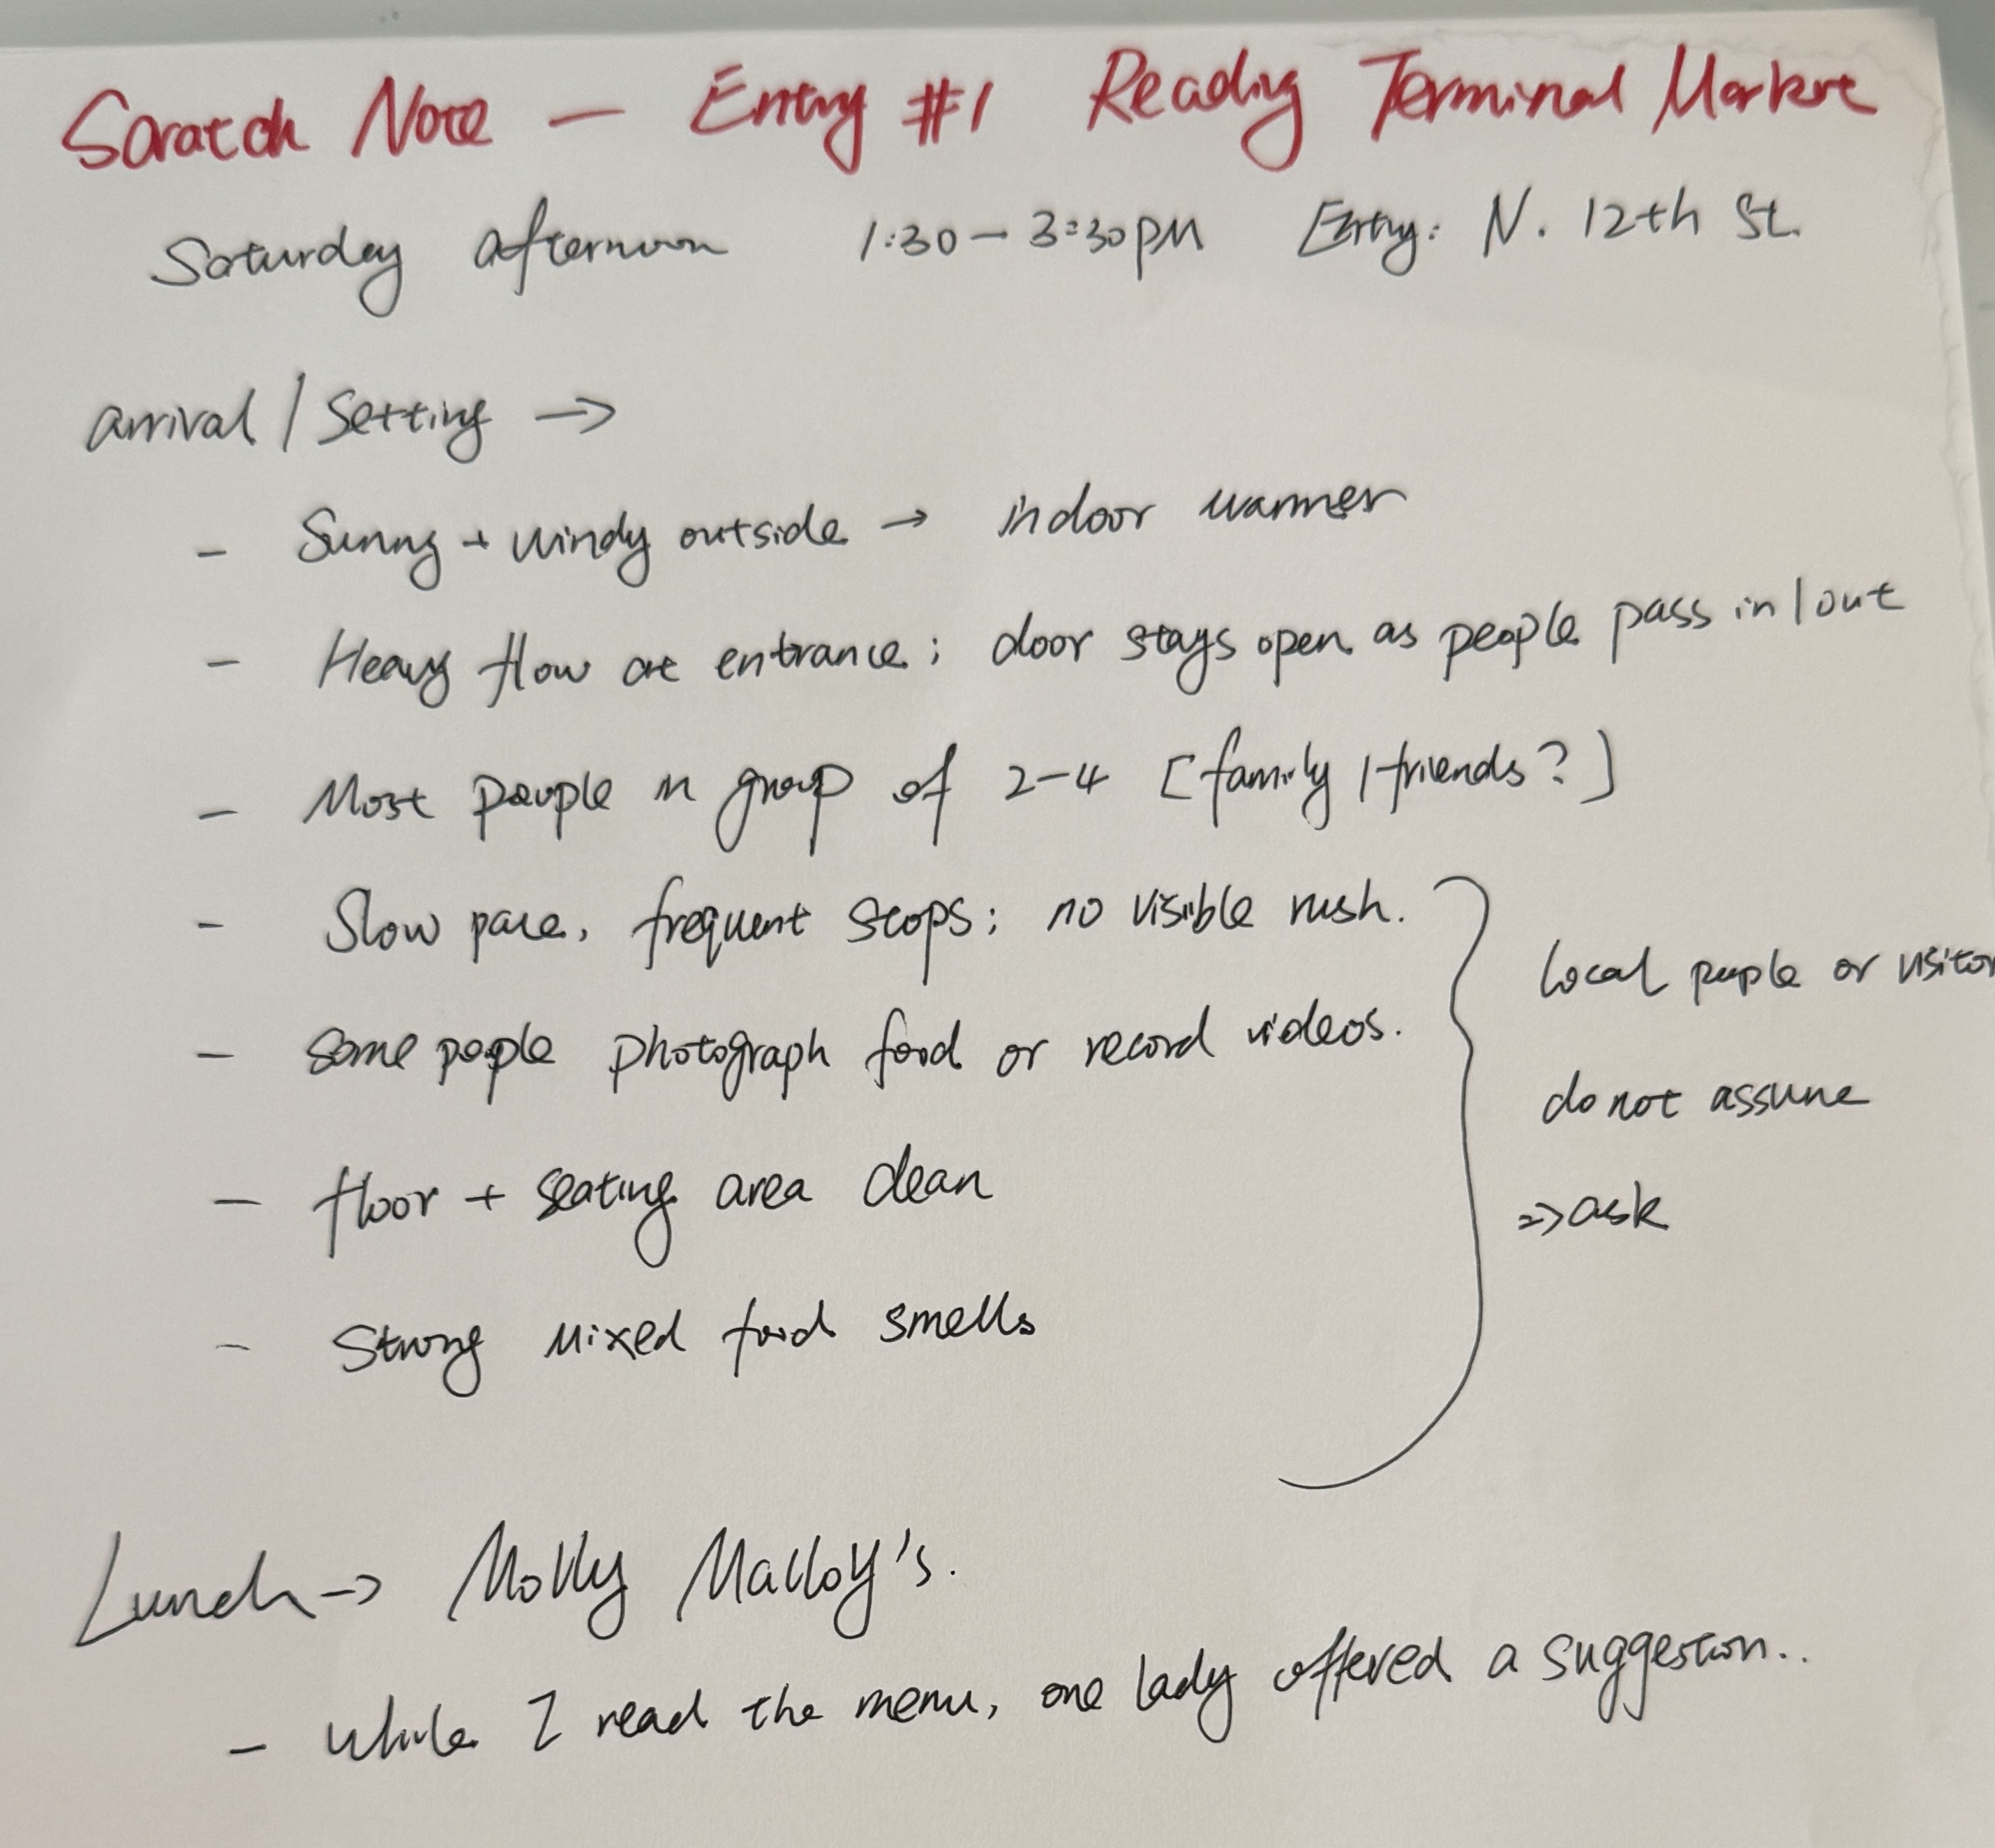 Scratch Note — Entry #1 Reading Terminal Market
Saturday afternoon 1:30 — 3:30 PM Entry: N. 12th St.
arrival / Setting →
- Sunny + windy outside → indoor warmer
- Heavy flow at entrance; door stays open as people pass in / out
- Most people in group of 2-4 [family / friends?]
- Slow pace, frequent stops; no visible rush.
- Some people photograph food or record videos.
local people or visitor
do not assume
=> ask
- floor + seating area clean
- Strong mixed food smells
Lunch → Molly Malloy's.
- While I read the menu, one lady offered a suggestion..